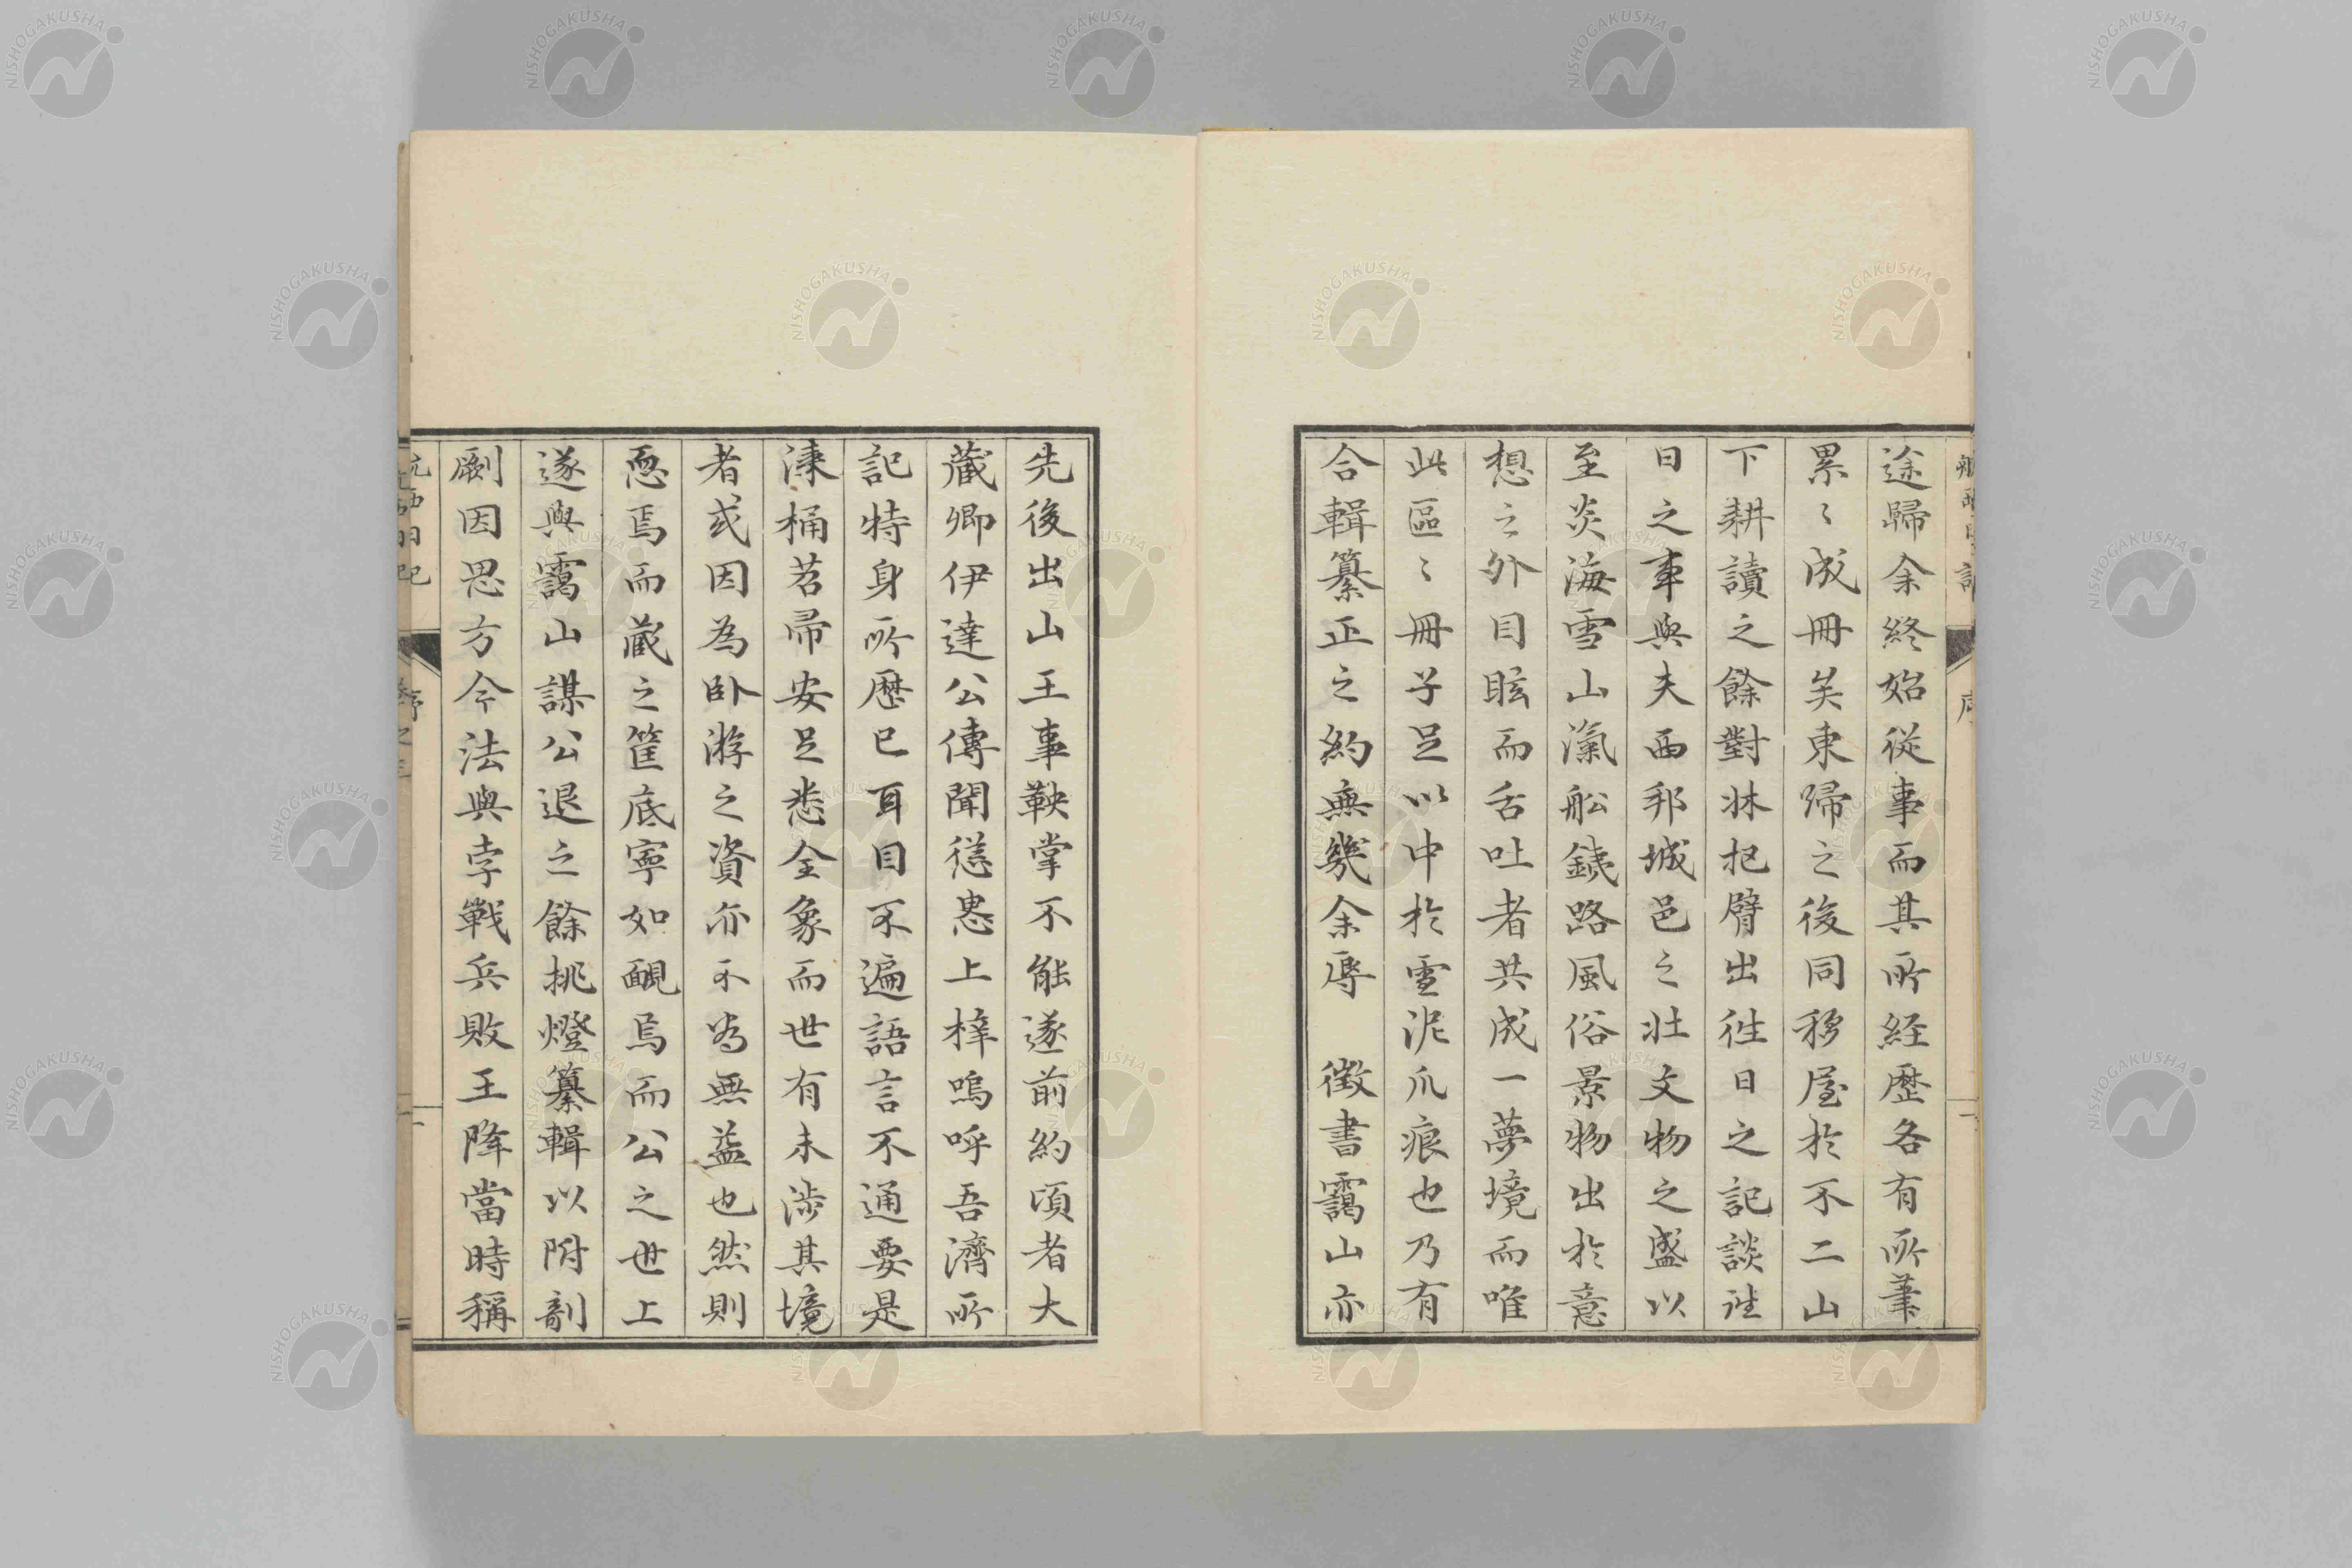 途歸余終始從事而其所経歴各有所筆
累〻成冊矣東帰之後同移屋於不二山
下耕讀之餘對牀把臂出徃日之記談徃
日之事與夫西邦城邑之壮文物之盛以
至炎海雪山瀛舩鉄路風俗景物出於意
想之外目眩而舌吐者共成一夢境而唯
此區〻冊子足以中於雪泥爪痕也乃有
合輯纂正之約無幾余辱 徴書靄山亦
先後出山王事鞅掌不能遂前約頃者大
藏卿伊達公傳聞慫慂上梓嗚呼吾濟所
記特身所歴已耳目不遍語言不通要是
漆桶苕帚安足悉全象而世有未渉其境
者或因為卧游之資亦不為無益也然則
慁焉而蔵之筐底寧如靦焉而公之世上
遂與靄山謀公退之餘挑燈纂輯以附剞
劂因思方今法與孛戦兵敗王降當時稱
航西日記
序
NISHOGAKUSHA